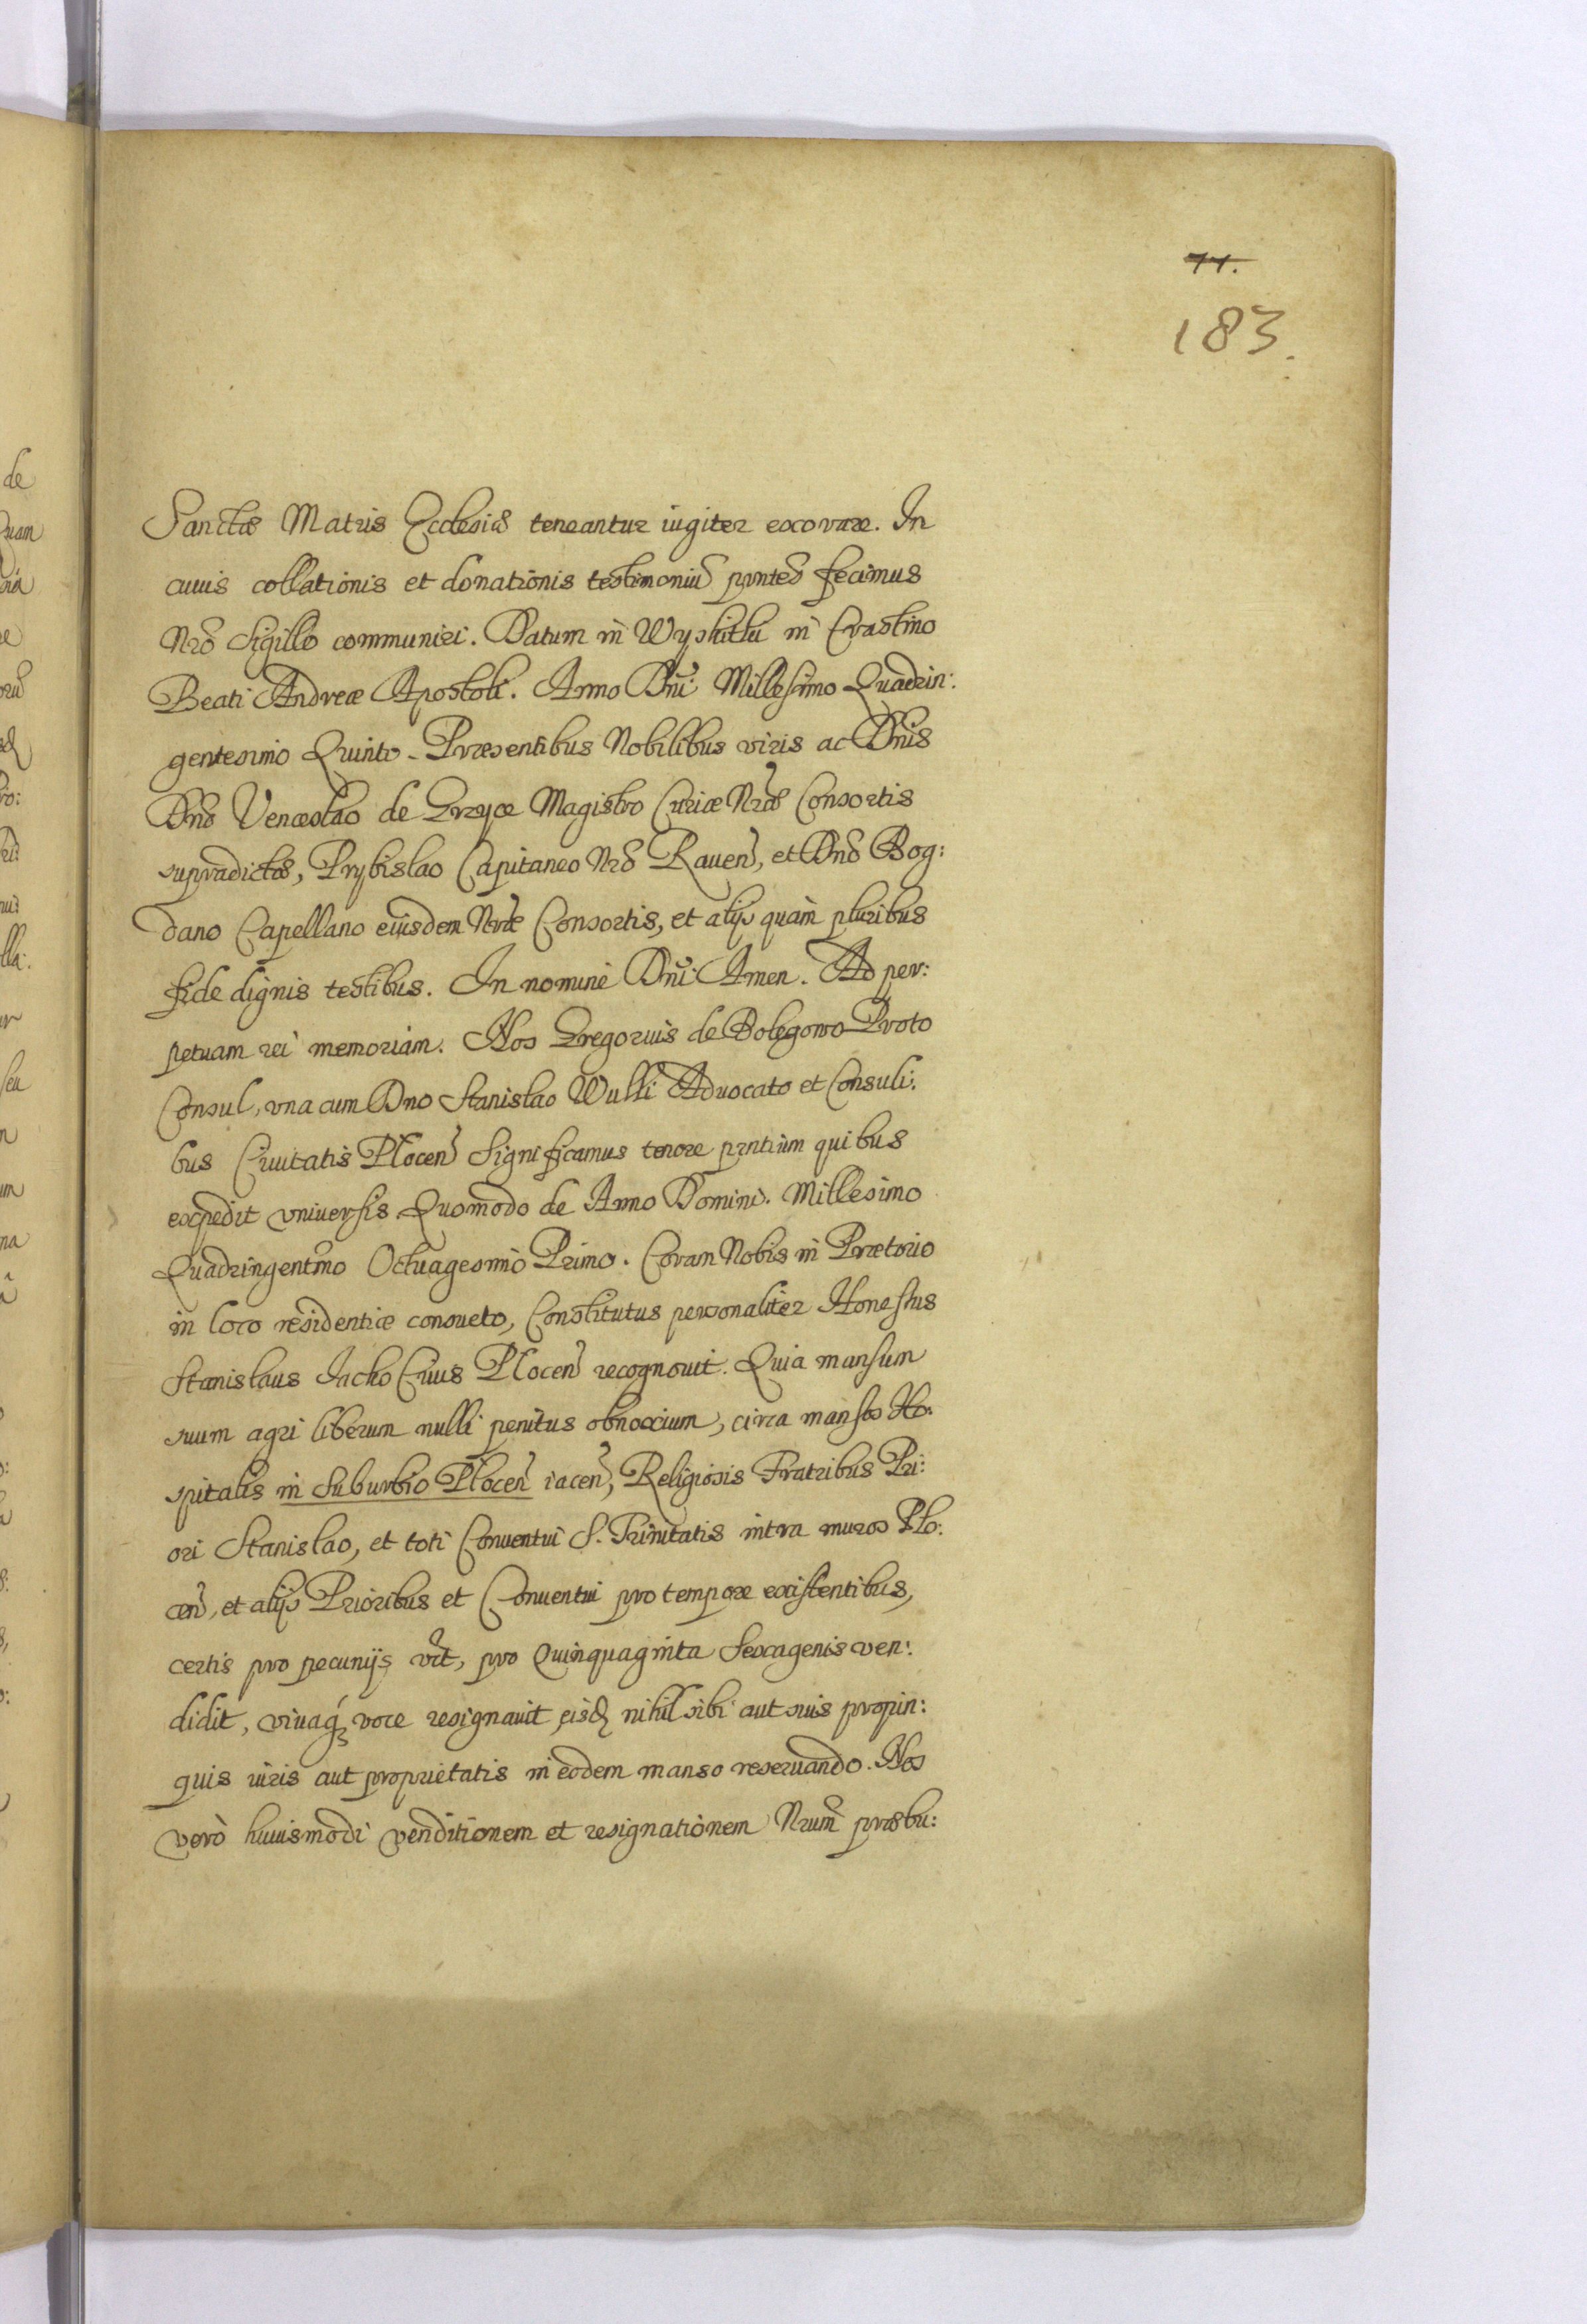 71.
183.
Sanctæ Matris Ecclesiæ teneantur iugiter exorare. In
cuius collationis et donationis testimoniũ pñtes fecimus
Nr̃o Sigillo communiri. Datum in Wyskitki in Crastino
Beati Andreæ Apostoli. Anno Dñi Millesimo Quadrin:
gentesimo Quinto. Præsentibus Nobilibus viris ac Dñis
Dño Venceslao de Grzyce Magistro Curiæ Nr̃æ Consortis
supradictæ, Prybislao Capitaneo Nr̃o Raueñ, et Dño Bog:
dano Capellano eiusdem Nr̃æ Consortis, et alijs quàm pluribus
fide dignis testibus. In nomine Dñi Amen. Ad per:
petuam rei memoriam. Nos Gregorius de Bolegowo Proto
Consul, vna cum Dno Stanislao Wulli Aduocato et Consuli:
bus Ciuitatis Ploceñ Significamus tenore pr̃ntium quibus
expedit vniuersis Quomodo de Anno Domini. Millesimo
Quadringentm̃o Octuagesimo Primo. Coram Nobis in Prætorio
in loco residentiæ consueto, Constitutus personaliter Honestus
Stanislaus Jacko Ciuis Ploceñ recognouit. Quia mansum
suum agri liberum nulli penitus obnoxium, circa mansos Ho:
spitalis in Suburbio Ploceñ iaceñ, Religiosis Fratribus Pri:
ori Stanislao, et toti Conuentui S. Trinitatis intra muros Plo:
ceñ, et alijs Prioribus et Conuentui pro tempore existentibus,
certis pro pecunijs vt̃, pro Quinquaginta Sexagenis ven:
didit, viuaq́ꝫ voce resignauit eisd nihil sibi aut suis propin:
quis iuris aut proprietatis in eodem manso reseruando. Nos
verò huiusmodi venditionem et resignationem Nrum̃ præbu: